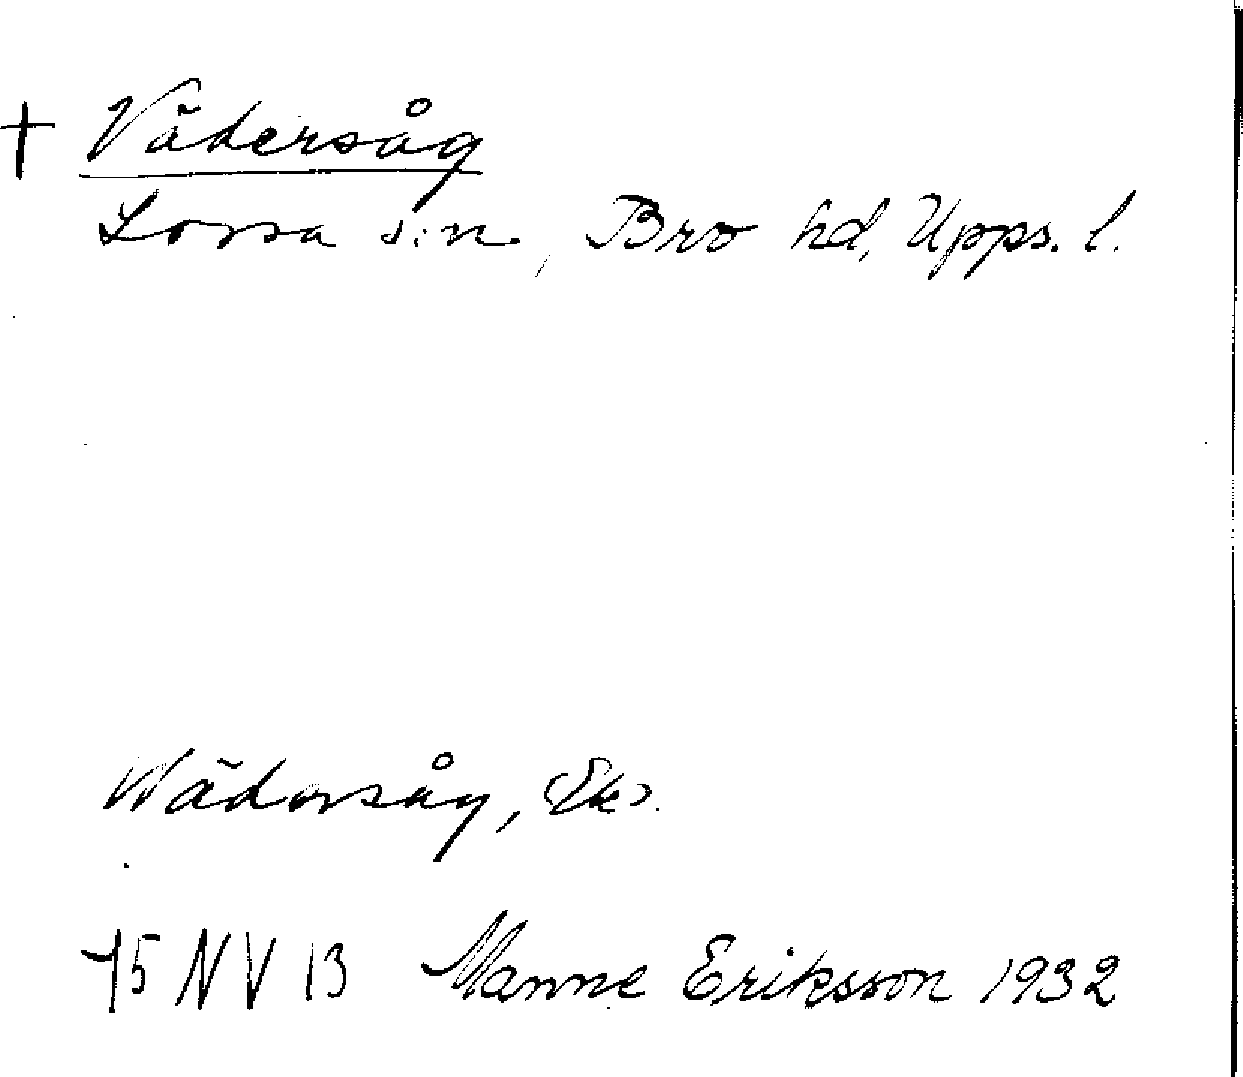 + Vädersåg
Lossa s:n, Bro hd, Upps. l.
Wädersåg, (Ek).
75 NV 13 Manne Eriksson 1932